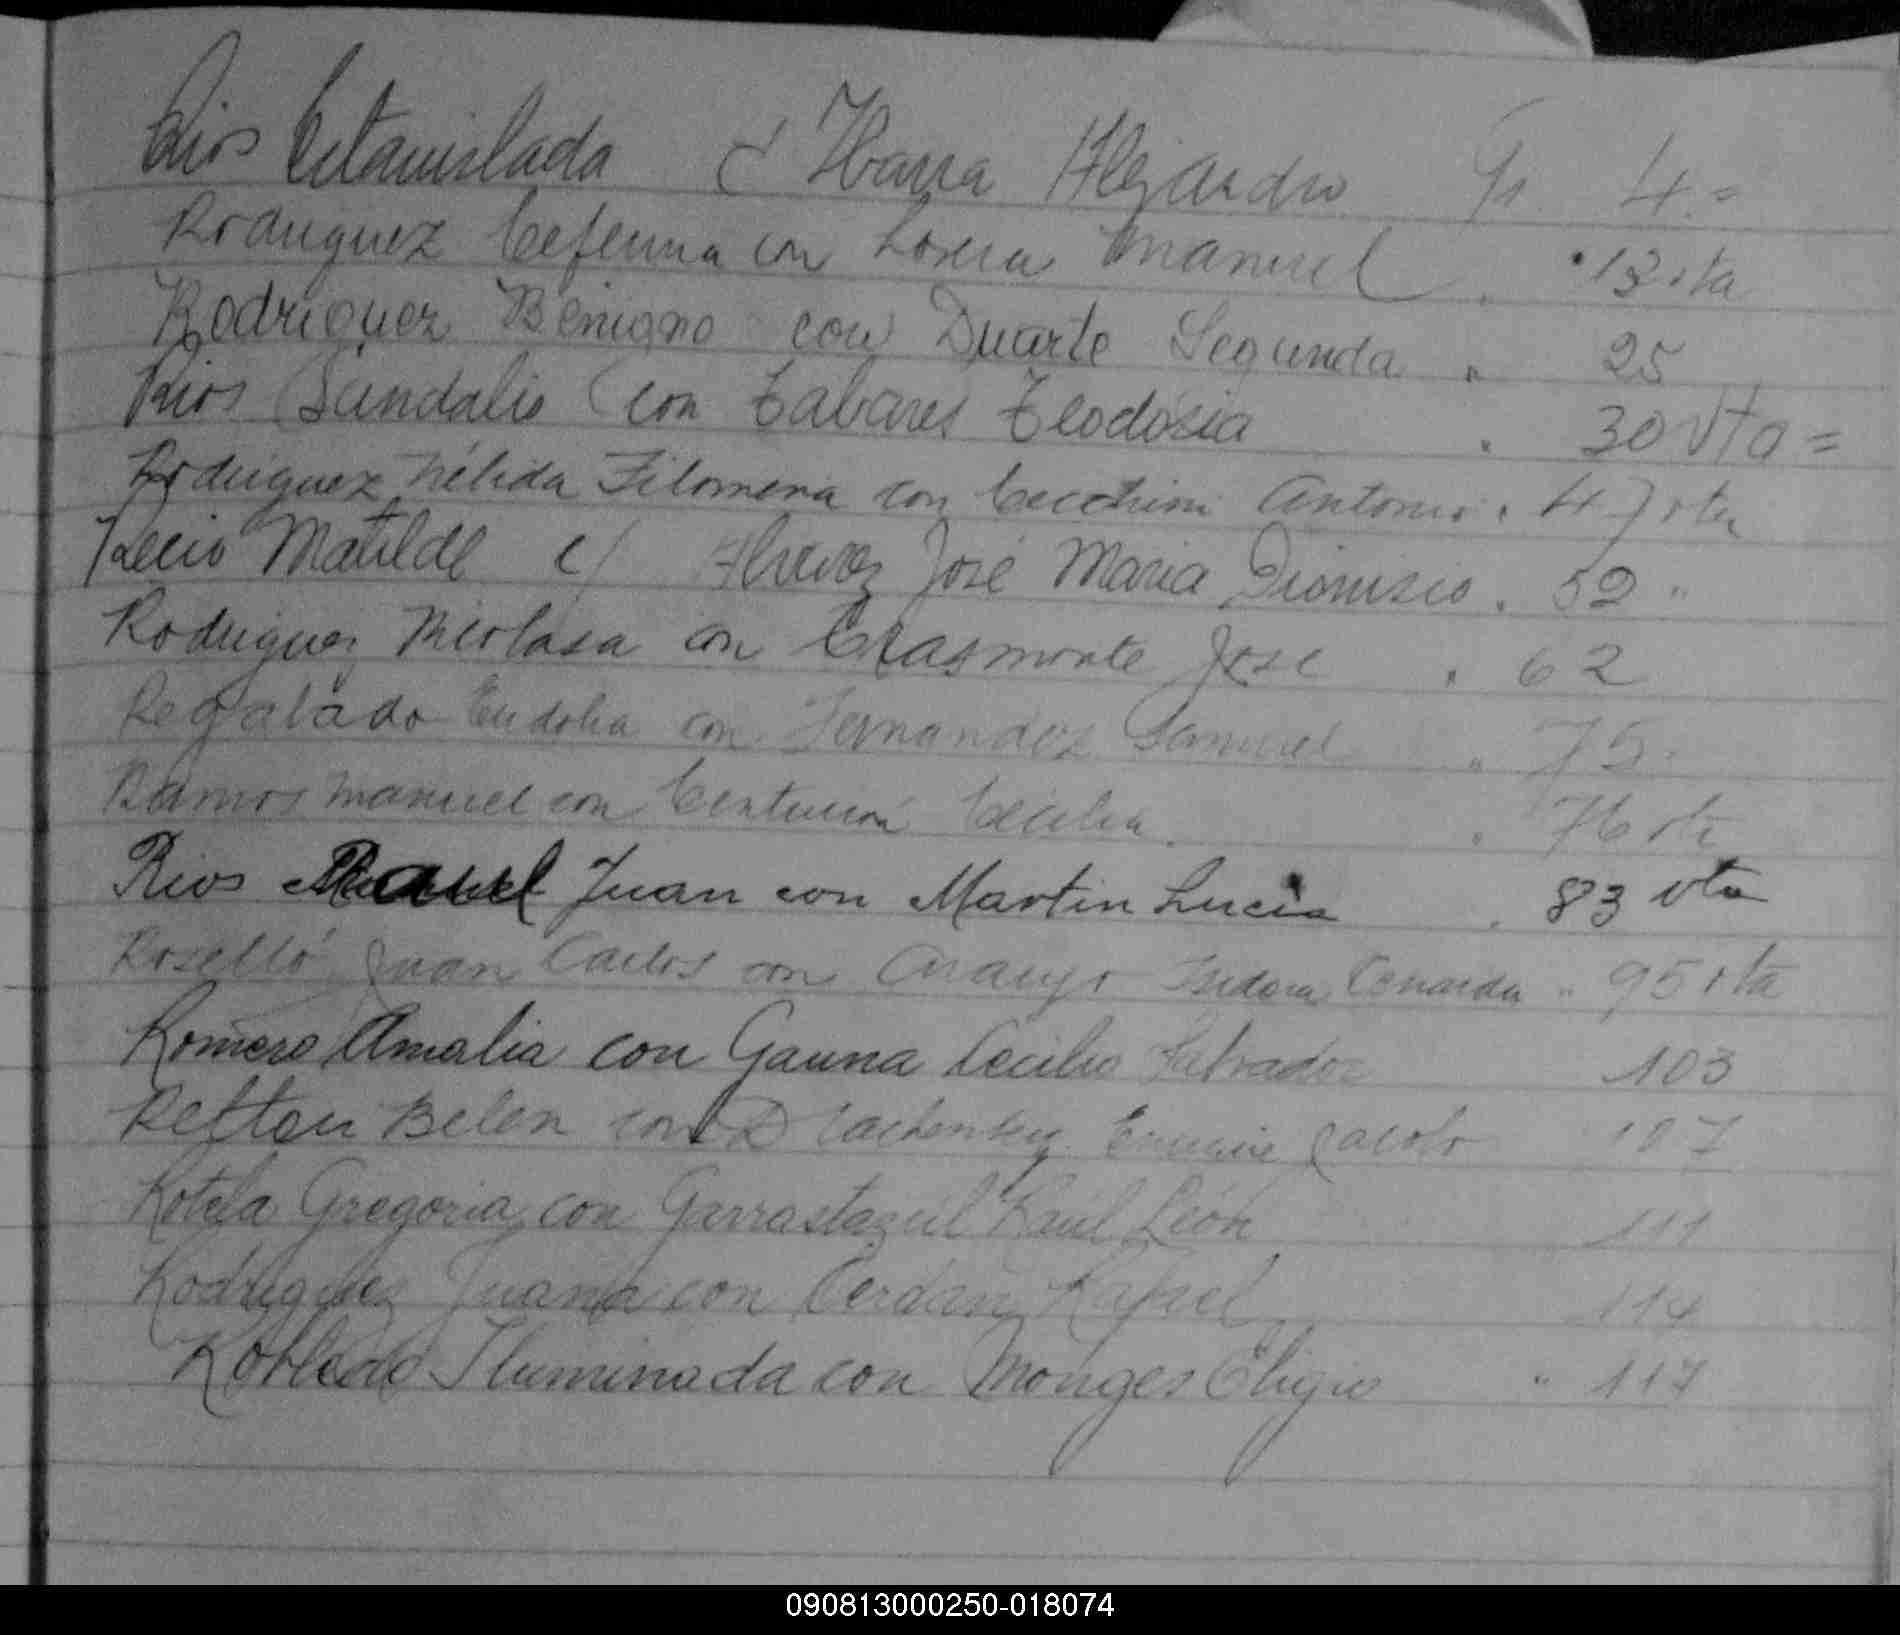 Rios Estanislada c/ Ibarra Alejandro Fs. 4.=
Rodriguez Ceferina con Manuel " 13 vta
Rodriguez Benigno con Duarte Segunda " 25
Rios Sandalio con Tabares Teodosia " 30 vta =
Rodriguez Nélida Filomena con Cecchini Antonio " 47 vta
Recio Matilde c/ José Maria Dionisio " 52 "
Rodriguez Nicolasa con José " 62
Regalado Eudolia con Fernandez Samuel " 75
Ramos Manuel con Centurión Cecilia " 76 vta
Rios Juan con Martin Lucia " 83 vta
Roselló Juan Carlos con Araujo Isidora " 95 vta
Romero Amalia con Gauna Cecilio Salvador 103
Belen con Jacobo 107
Rotela Gregoria con Garrastazúl Raúl León 111
Rodriguez Juana con Cerdan Rafael 114
Robledo Iluminada con Monges Eligio " 117
090813000250-018074